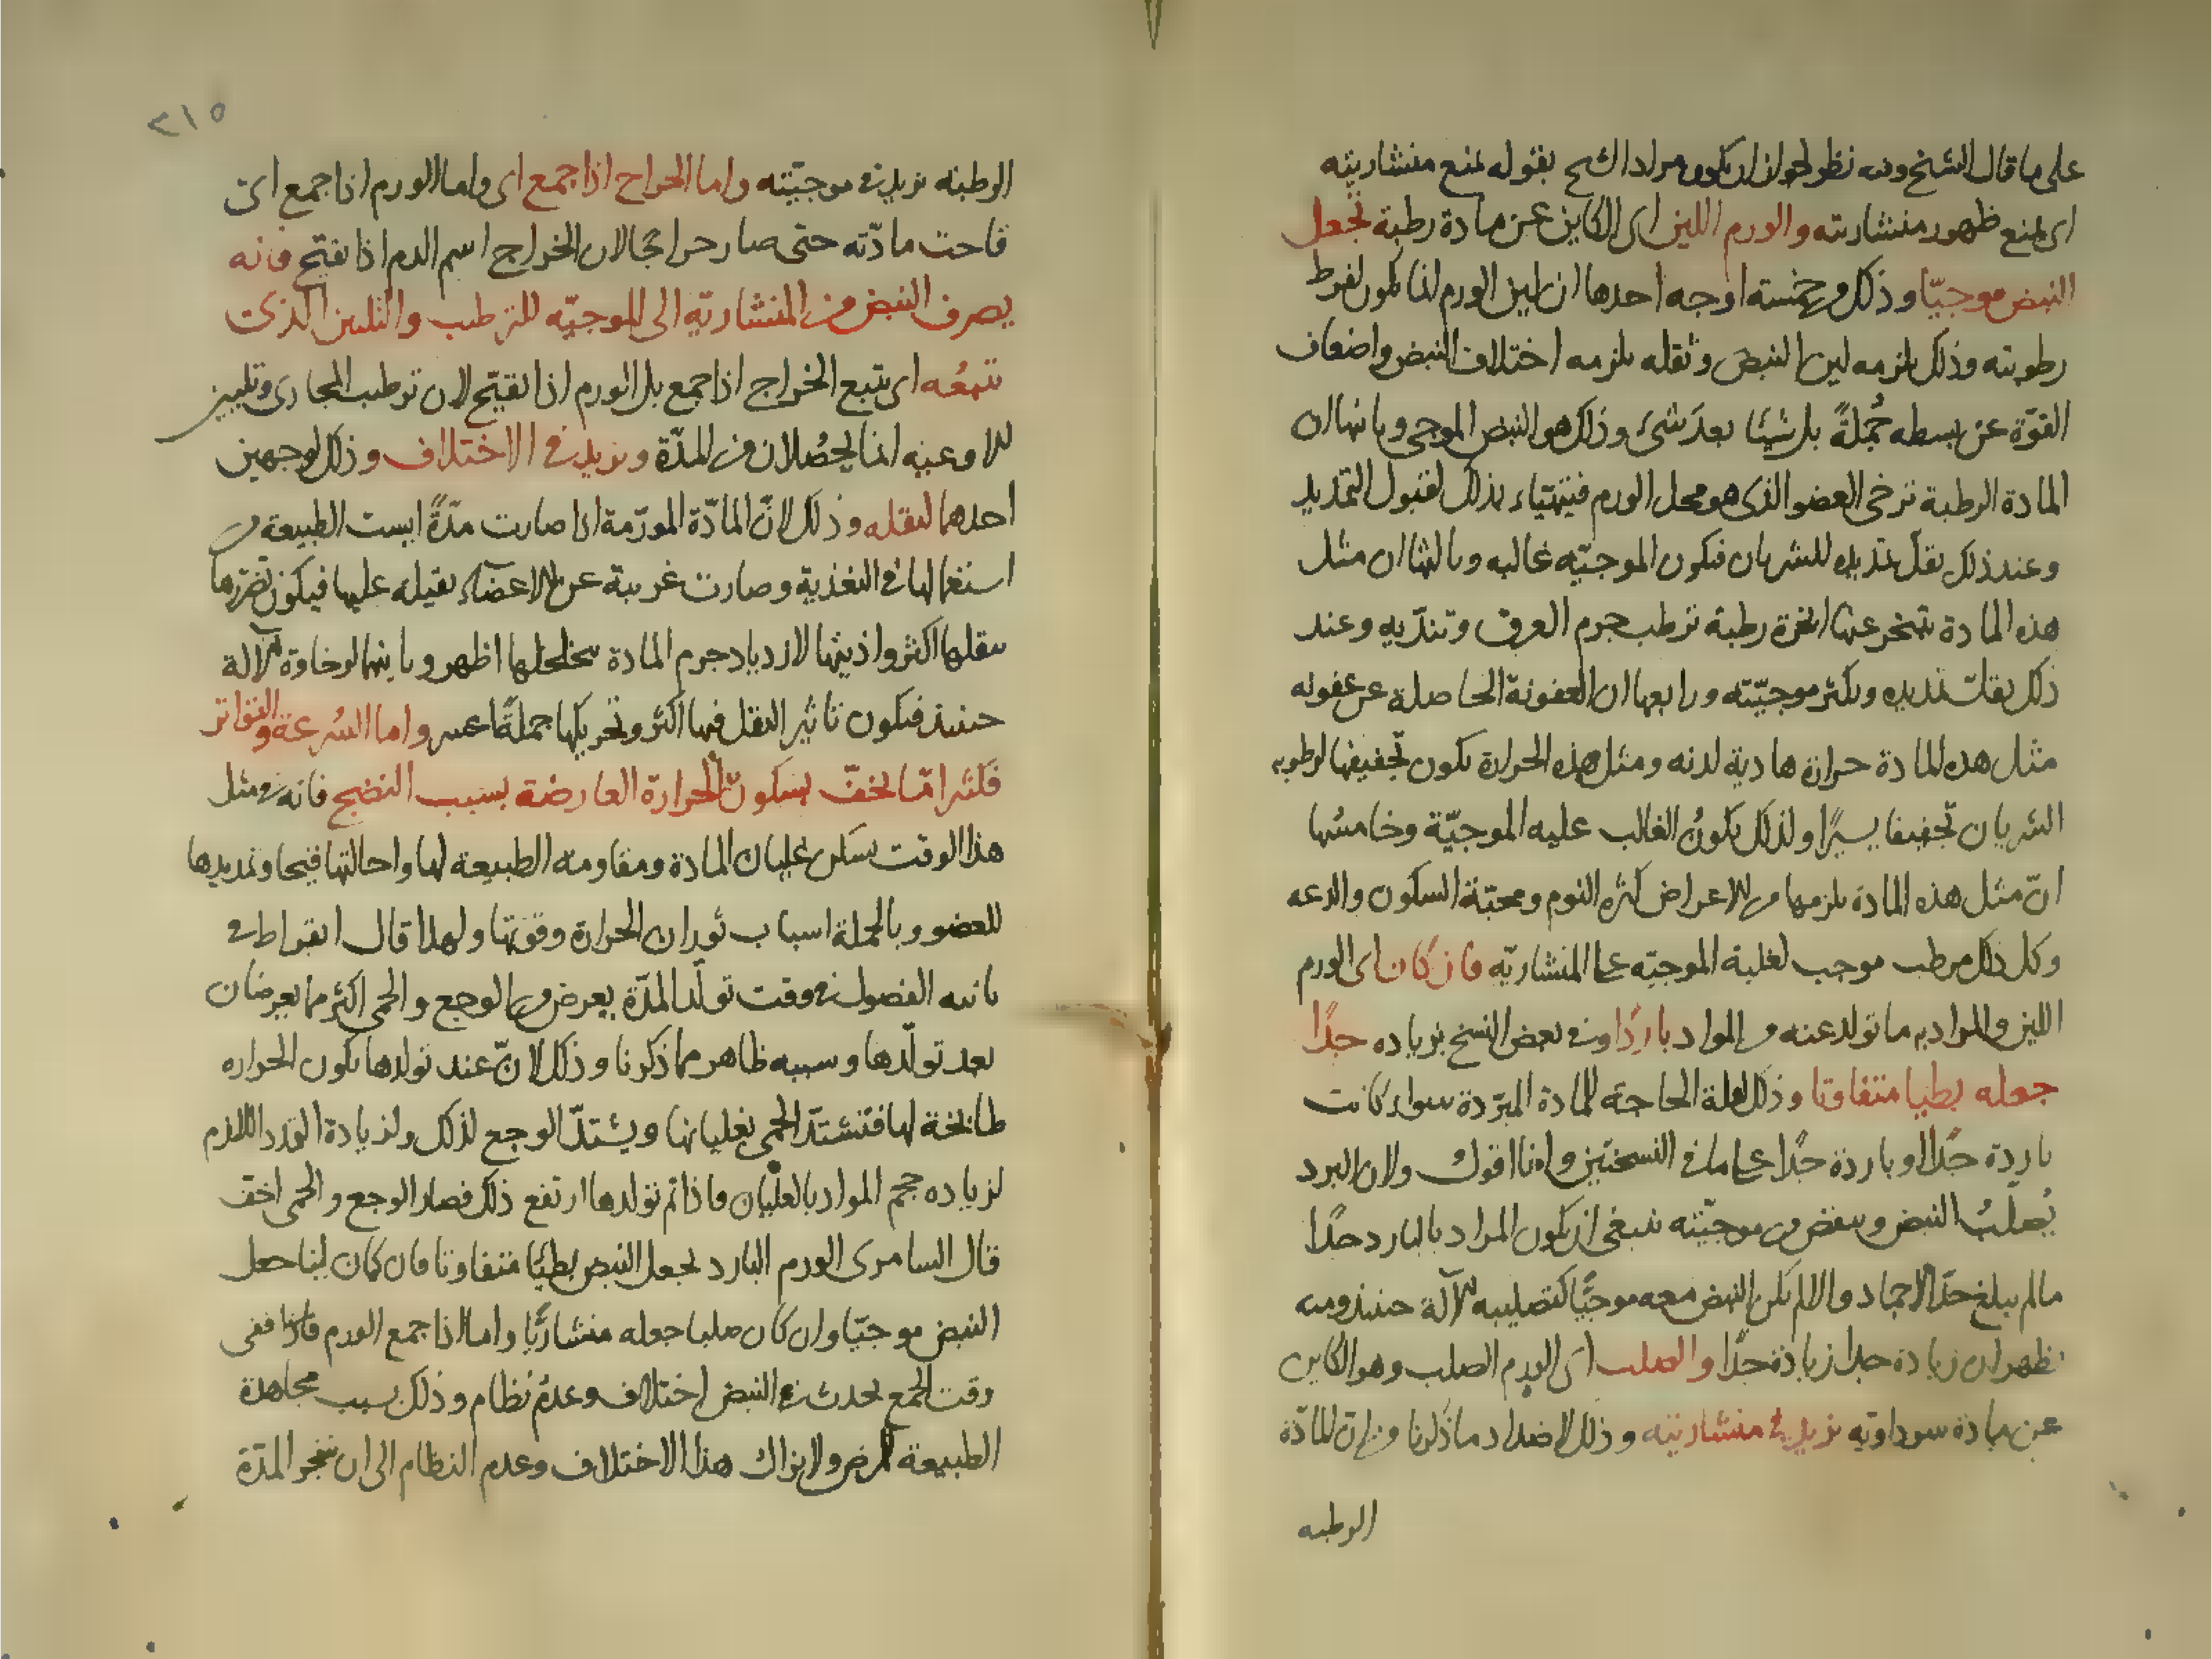 على ما قال الشيخ وفيه نظر لجواز ان يكون مراد الشيخ بقوله تمنع منشاريته
اى تمنع ظهور منشاريته والورم اللين اى الكاين عن مادة رطبة تجعل
النبض موجيّا وذلك من خمسة اوجه احدها ان لين الورم انما يكون لفرط
رطوبته وذلك يلزمه لين النبض وثقله يلزمه اختلاف النبض واضعاف
القوّة عن بسطه جُملةً بل شيئا بعدَ شئ وذلك هو النبض الموجى وثانيها ان
المادة الرطبة ترخى العضو الذى هو محل الورم فيتهيّاء بذلك لقبول التمديد
وعند ذلك يقلّ تمديده للشريان فيكون الموجيّة غالبه وثالثها ان مثل
هذه المادة تتبخر عنها ابخرة رطبة ترطب جرم العرق وتندّيه وعند
ذلك يقلّ تمديده ويكثر موجيّته ورابعها ان العفونة الحاصلة عن عفونه
مثل هذه المادة حرارة هادية لدنه ومثل هذه الحرارة يكون تجفيفها لرطوبه
الشريان تجفيفا يسيرًا ولذلك يكونُ الغالب عليه الموجيّة وخامسُها
انّ مثل هذه المادة يلزمها من الاعراض كثره النوم ومحبّة السكون والدعه
وكل ذلك مرطب موجب لغلبة الموجيّه على المنشاريّه فان كان اى الورم
اللين والمراد به ما تولد عنه من المواد باردًا وفى بعض النسخ بزياده جدًا
جعله بطيا متفاوتا وذلك لقلة الحاجة للمادة المبرّدة سواء كانت
باردة جدًا او باردة جدًا على ما فى النسختين وانا اقول ولان البرد
يُصلّبُ النبض وينقض من موجيّته ينبغى ان يكون المراد بالبارد جدًا
مالم يبلغ حدّ الاجماد والا لم يكن النبض معه موجيًّا لتصليبه الآلة حينئذ ومنه
يظهر ان زيادة جدا زيادة جدًا والصلب اى الورم الصلب وهو الكاين
عن مادة سوداويه يزيد فى منشاريته وذلك لاضداد ما ذكرنا من ان المادّة
الرطبه
٢١٥
الرطبة يزيد فى موجيّته واما الخراج اذا جمع اى واما الورم اذا جمع اى
قاحت مادّته حتى صار خراجا لان الخراج اسم الورم اذا تقيّح فانه
يصرف النبض من المنشاريّة الى الموجيّه للترطيب والتليين الذى
يتبعُه اى يتبع الخراج اذا جمع بل الورم اذا تقيّح لان ترطيب المجارى وتليين
الاوعيه انما يحصُلان من المدّة ويزيد فى الاختلاف وذلك لوجهين
احدهما لثقله وذلك لانّ المادّة المورّمة اذا صارت مدّةً ايست الطبيعة من
استعمالها فى التغذية وصارت غريبة عن الاعضآء ثقيلة عليها فيكون تضررها
بثقلها اكثر واذيتها لازدياد جرم المادة بتخلخلها اظهر وثانيهما لرخاوة الآلة
حينئذ فيكون تاثير الثقل فيها اكثر وتحريكها جملةً اعسر واما السُرعة والتواتر
فكثيرا مّا يخفّ بسكون الحرارة العارضة بسبب النضج فانه فى مثل
هذا الوقت يسكن غليان المادة ومقاومة الطبيعة لها واحالتها قيحا وتمديدها
للعضو وبالجملة اسباب ثوران الحرارة وقوتها ولهذا قال ابقراط فى
ثانيه الفصول فى وقت تولّد المدّة يعرض من الوجع والحمى اكثر مما يعرضان
بعد تولّدها وسببه ظاهر مما ذكرنا وذلك لانّ عند تولدها يكون الحراره
طابخة لها فتشتدّ الحمى بغليانها ويشتدّ الوجع لذلك ولزيادة التمدد اللازم
لزياده حجم المواد بالغليان فاذا تم تولدها ارتفع ذلك فصار الوجع والحمى اخف
قال السامرى الورم البارد يجعل النبض بطيئا متفاوتا فان كان لينا جعل
النبض موجيّا وان كان صلبا جعله منشاريًّا واما اذا جمع الورم ففى
وقت الجمع يحدث فى النبض اختلاف وعدم نظام وذلك بسبب مجاهدة
الطبيعة المرض ولا يزال هذا الاختلاف وعدم النظام الى ان تنفجر المدّة